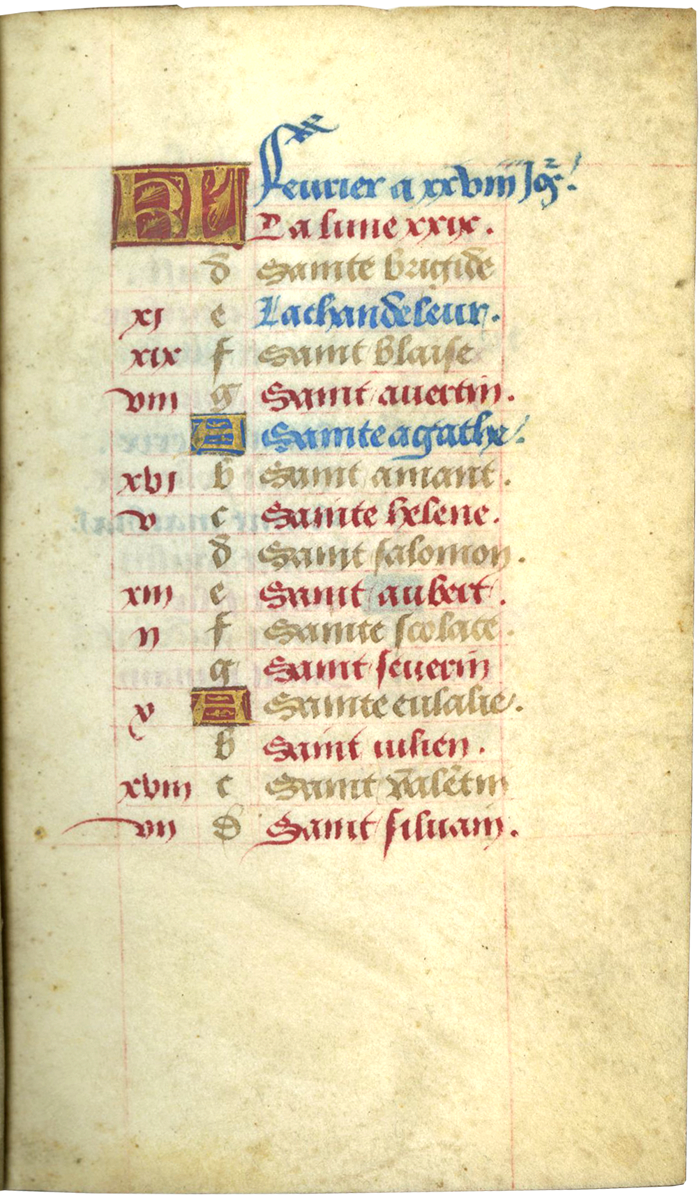 KL Feurier a xxviii Jos.
La lune xxix.
d Sainte brigide
xi e La chandeleur.
xix f Saint blaise
viii g Saint auertin.
A Sainte agathe.
xvi b Saint amant.
v c Sainte helene.
d Saint salomon.
xiii e Saint aubert.
ii f Sainte scolace.
g Saint seuerin
x A Sainte eulalie.
b Saint iulien.
xviii c Saint valētin
vii d Saint siluain.